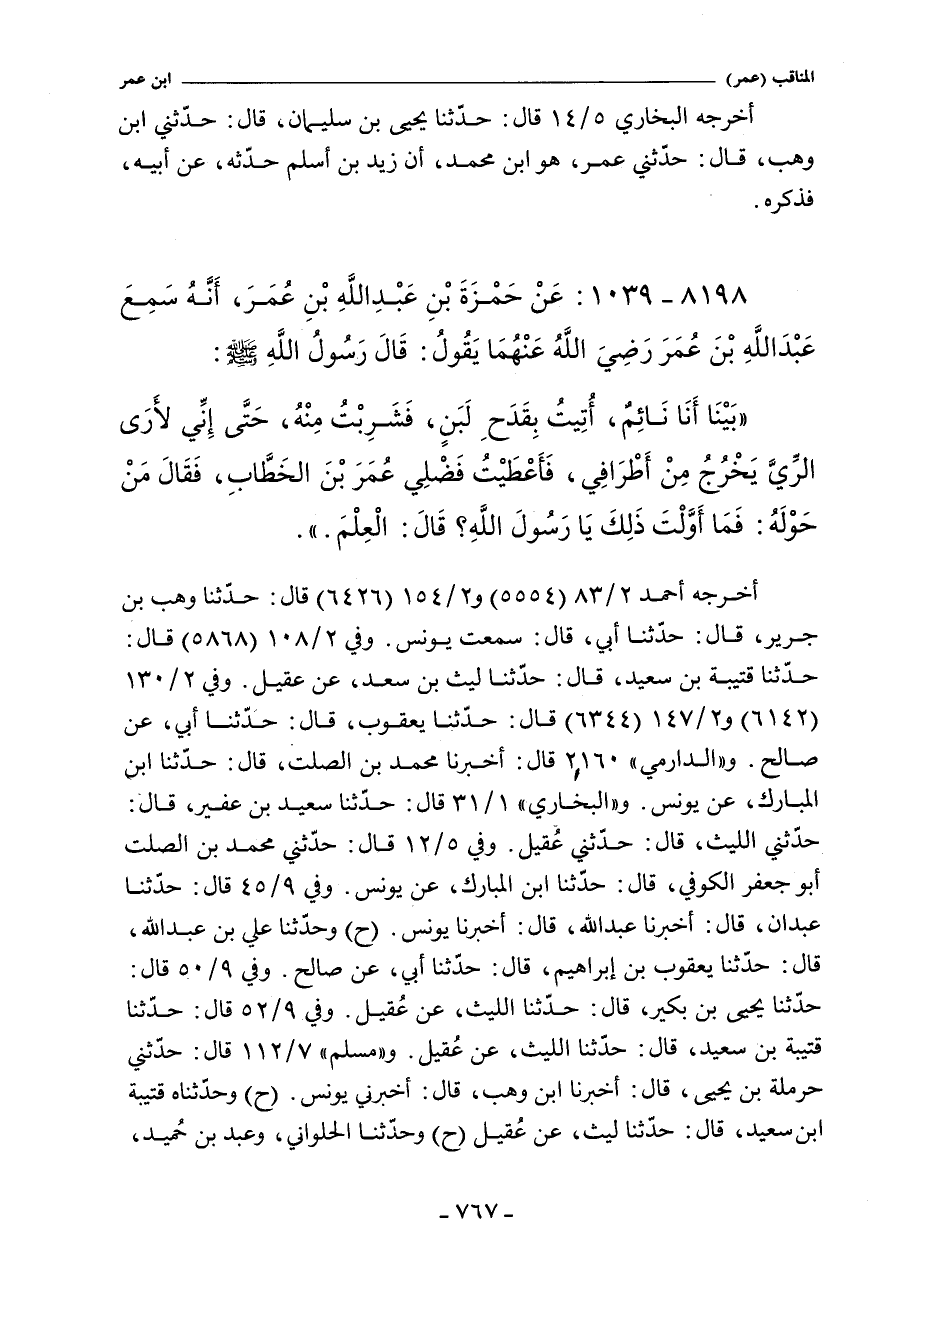 المناقب (عمر) ــــــــــــــــــــــــ ابن عمر
أخرجه البخاري ١٤/٥ قال: حدّثنا يحيى بن سليمان، قال: حدّثني ابن
وهب، قال: حدّثني عمر، هو ابن محمد، أن زيد بن أسلم حدّثه، عن أبيه،
فذكره.
٨١٩٨ - ١٠٣٩: عَنْ حَمْزَةَ بْنِ عَبْدِاللَّهِ بْنِ عُمَرَ، أَنَّهُ سَمِعَ
عَبْدَاللَّهِ بْنَ عُمَرَ رَضِيَ اللَّهُ عَنْهُمَا يَقُولُ: قَالَ رَسُولُ اللَّهِ ﷺ:
«بَيْنَا أَنَا نَائِمٌ، أُتِيتُ بِقَدَحِ لَبَنٍ، فَشَرِبْتُ مِنْهُ، حَتَّى إِنِّي لأَرَى
الرِّيَّ يَخْرُجُ مِنْ أَطْرَافِي، فَأَعْطَيْتُ فَضْلِي عُمَرَ بْنَ الخَطَّابِ، فَقَالَ مَنْ
حَوْلَهُ: فَمَا أَوَّلْتَ ذَلِكَ يَا رَسُولَ اللَّهِ؟ قَالَ: الْعِلْمَ.».
أخرجه أحمد ٨٣/٢ (٥٥٥٤) و١٥٤/٢ (٦٤٢٦) قال: حدّثنا وهب بن
جرير، قال: حدّثنا أبي، قال: سمعت يونس. وفي ١٠٨/٢ (٥٨٦٨) قال:
حدّثنا قتيبة بن سعيد، قال: حدّثنا ليث بن سعد، عن عقيل. وفي ١٣٠/٢
(٦١٤٢) و١٤٧/٢ (٦٣٤٤) قال: حدّثنا يعقوب، قال: حدّثنا أبي، عن
صالح. و«الدارمي» ٢١٦٠ قال: أخبرنا محمد بن الصلت، قال: حدّثنا ابن
المبارك، عن يونس. و«البخاري» ٣١/١ قال: حدّثنا سعيد بن عفير، قال:
حدّثني الليث، قال: حدّثني عُقيل. وفي ١٢/٥ قال: حدّثني محمد بن الصلت
أبو جعفر الكوفي، قال: حدّثنا ابن المبارك، عن يونس. وفي ٤٥/٩ قال: حدّثنا
عبدان، قال: أخبرنا عبدالله، قال: أخبرنا يونس. (ح) وحدّثنا علي بن عبدالله،
قال: حدّثنا يعقوب بن إبراهيم، قال: حدّثنا أبي، عن صالح. وفي ٥٠/٩ قال:
حدّثنا يحيى بن بكير، قال: حدّثنا الليث، عن عُقيل. وفي ٥٢/٩ قال: حدّثنا
قتيبة بن سعيد، قال: حدّثنا الليث، عن عُقيل. و«مسلم» ١١٢/٧ قال: حدّثني
حرملة بن يحيى، قال: أخبرنا ابن وهب، قال: أخبرني يونس. (ح) وحدّثناه قتيبة
ابن سعيد، قال: حدّثنا ليث، عن عُقيل (ح) وحدّثنا الحلواني، وعبد بن حُميد،
- ٧٦٧ -